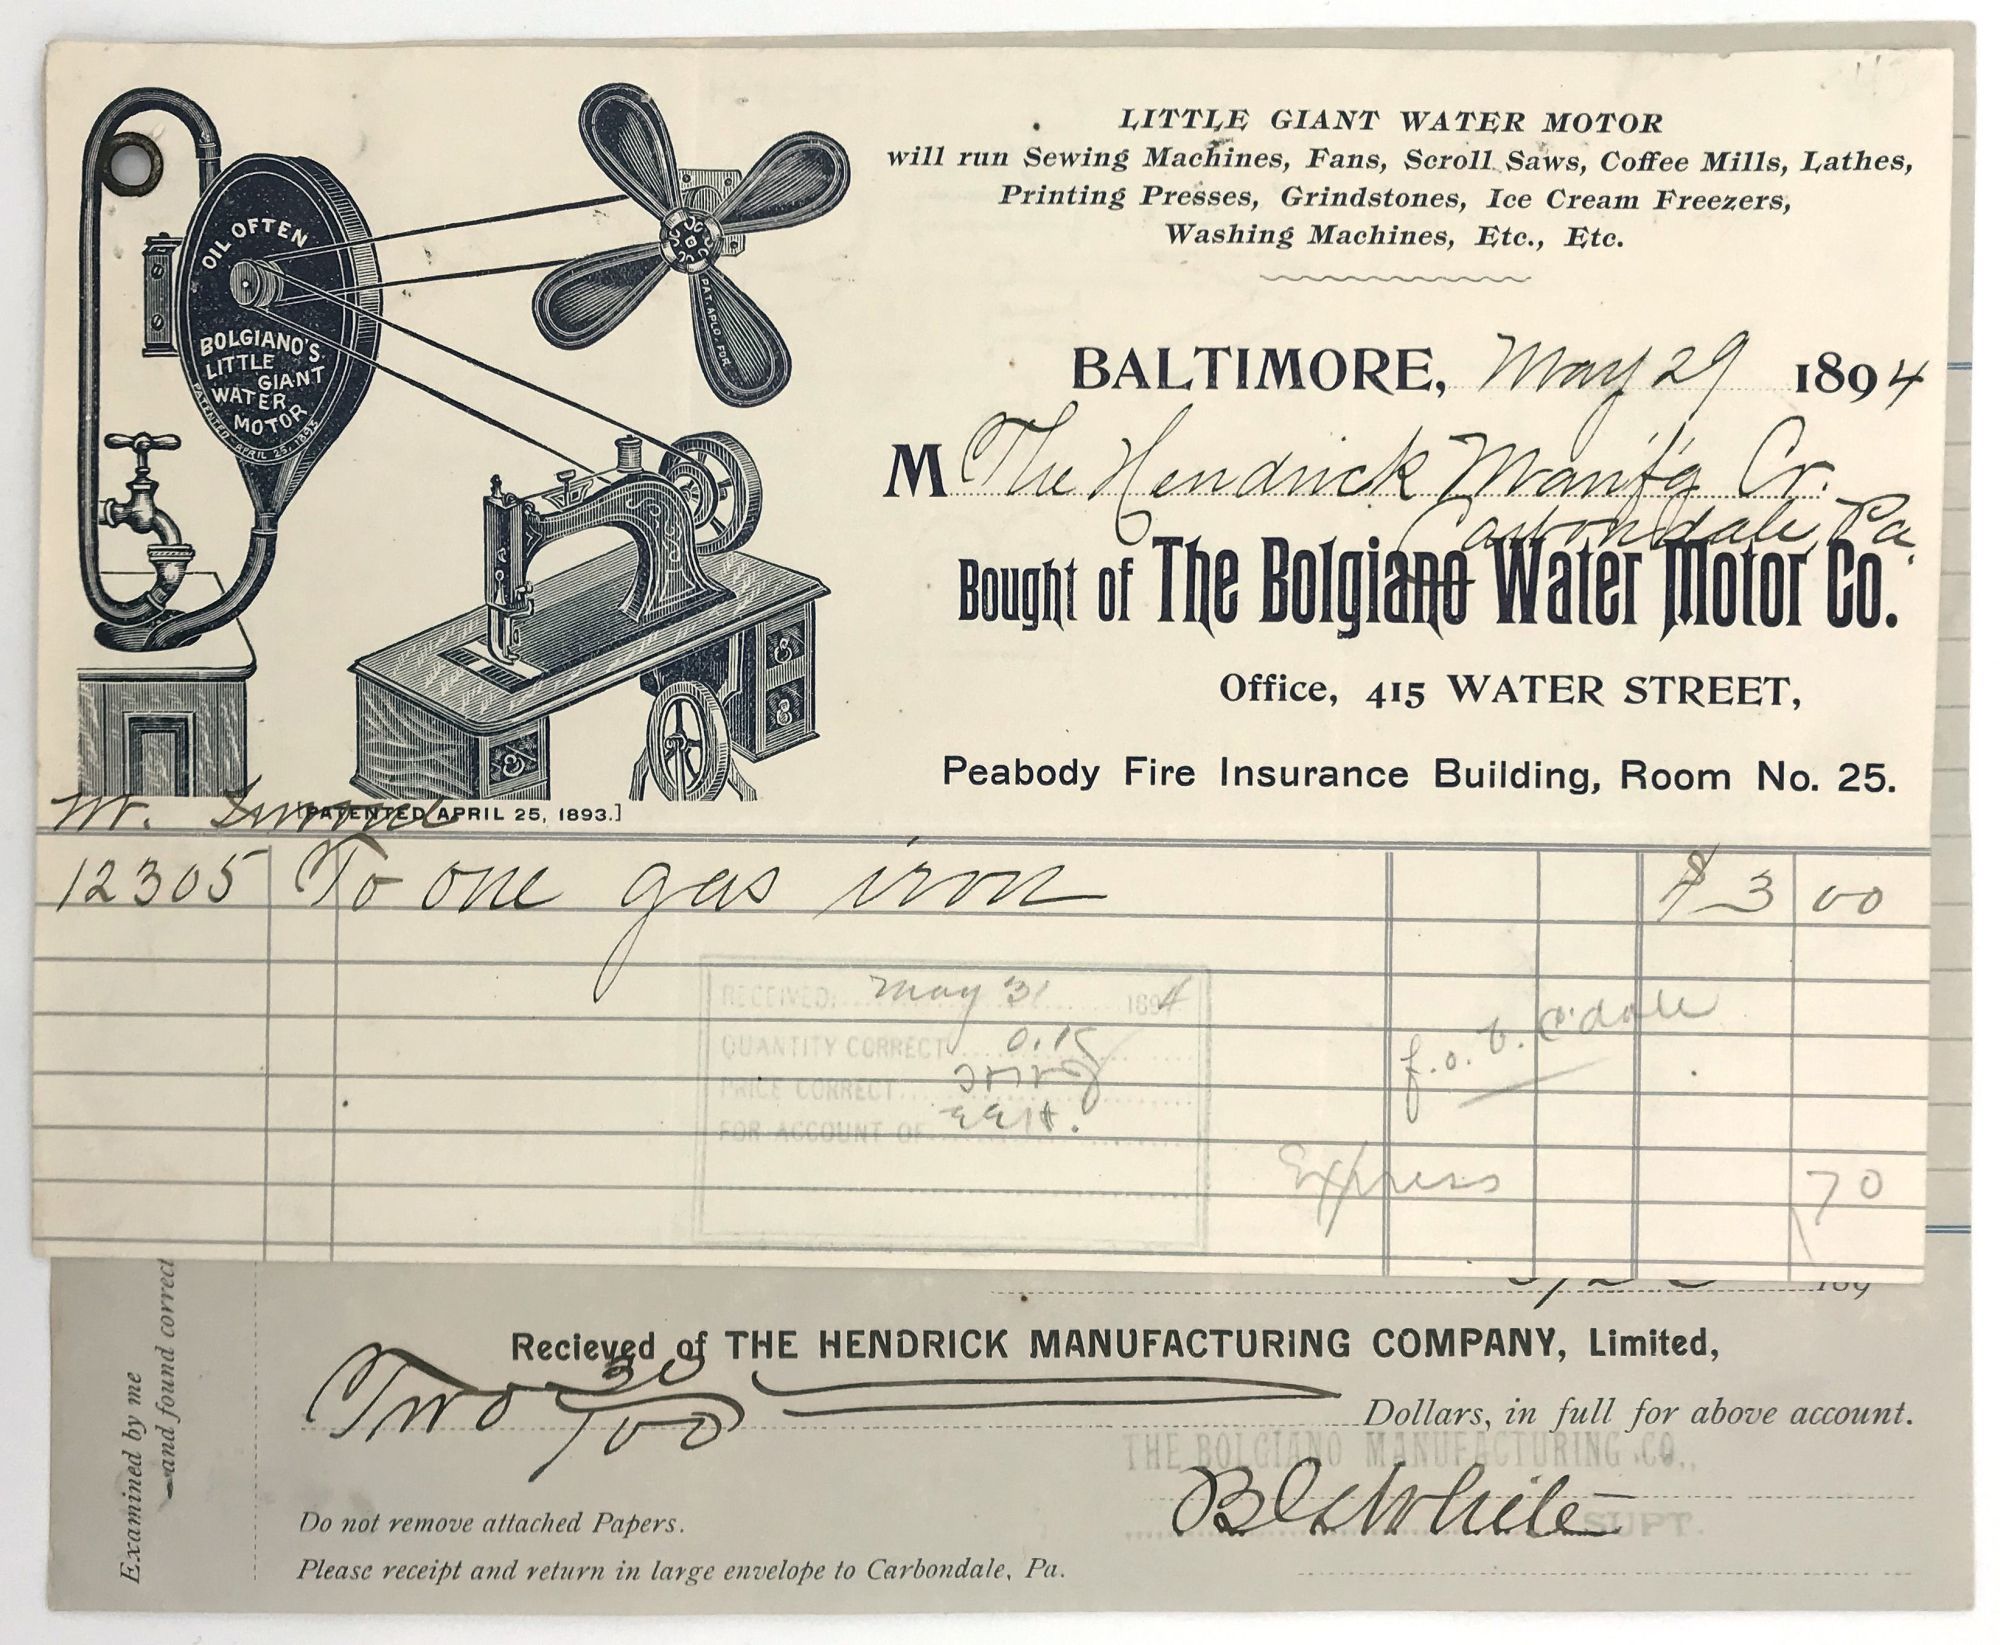 LITTLE GIANT WATER MOTOR
will run Sewing Machines, Fans, Scroll Saws, Coffee Mills, Lathes,
Printing Presses, Grindstones, Ice Cream Freezers,
Washing Machines, Etc., Etc.
OIL OFTEN
BOLGIANO'S
LITTLE
GIANT
WATER
MOTOR
PATENTED APRIL 25, 1893
PAT. APLD. FOR
BALTIMORE, May 29 1894
M The Hendrick Manf'g Co.
Carbondale, Pa.
Bought of The Bolgiano Water Motor Co.
Office, 415 WATER STREET,
Peabody Fire Insurance Building, Room No. 25.
[PATENTED APRIL 25, 1893.]
12305 To one gas iron $3 00
RECEIVED, May 31 1894
QUANTITY CORRECT
PRICE CORRECT
FOR ACCOUNT OF
f.o.b. C'dale
Express 70
189
Recieved of THE HENDRICK MANUFACTURING COMPANY, Limited,
Two 30/100 Dollars, in full for above account.
THE BOLGIANO MANUFACTURING CO.,
White SUPT.
Do not remove attached Papers.
Please receipt and return in large envelope to Carbondale, Pa.
Examined by me
and found correct